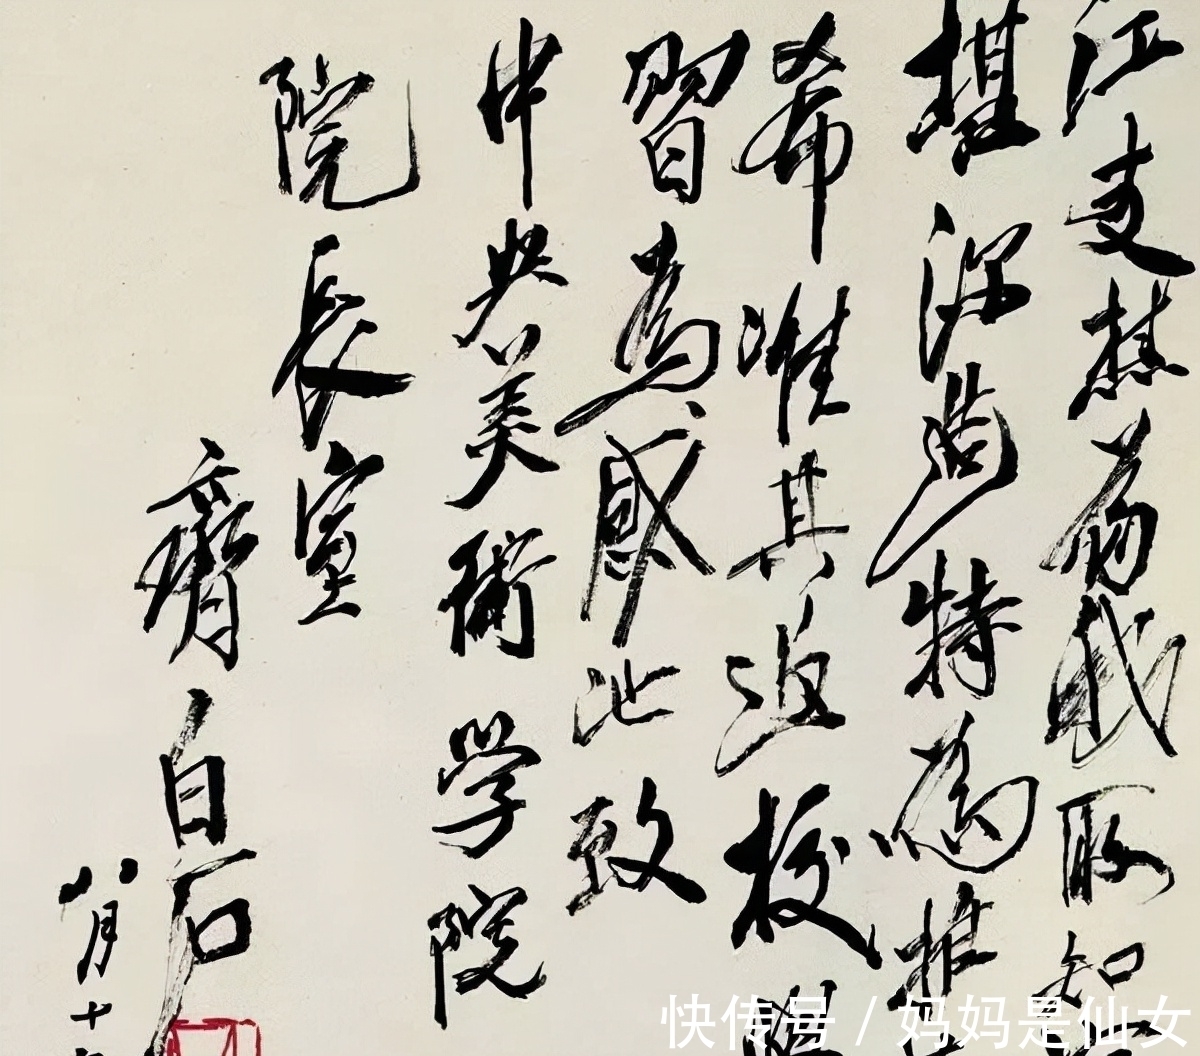 江 为我所知
堪深造特為推
希准其返校
習為感此致
中央美術学院
院長室
齊白石
八月十
快传号 / 妈妈是仙女